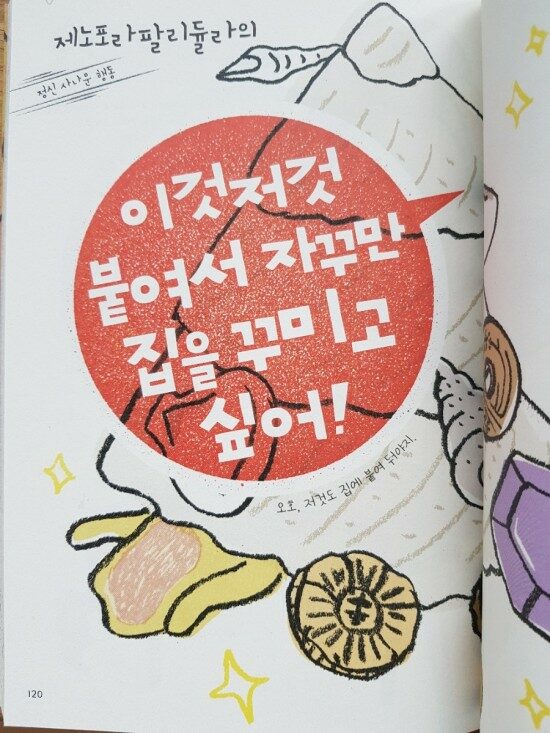 제노포라팔리듈라의
정신 사나운 행동
이것저것
붙여서 자꾸만
집을 꾸미고
싶어!
오호, 저것도 집에 붙여 둬야지.
120